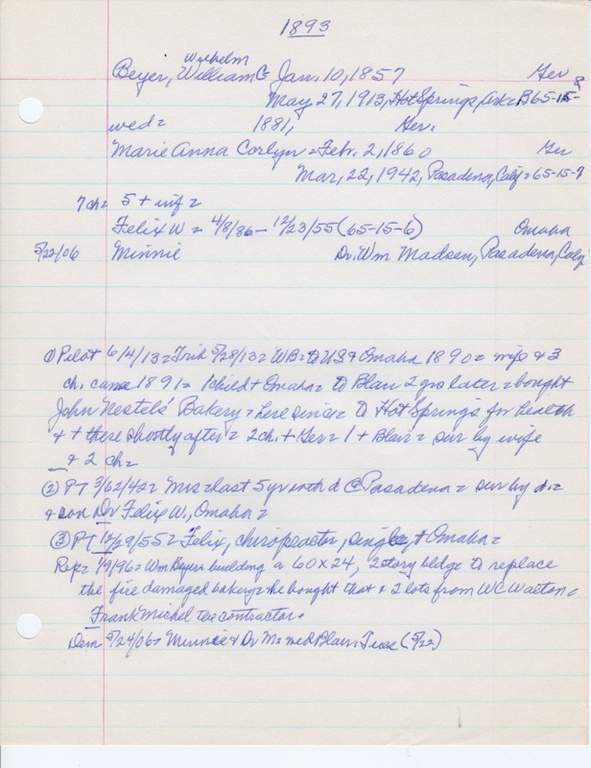 1893
Wilhelm
Beyer, William C= Jan. 10, 1857 Ger
May 27, 1913, Hot Springs, Ark= B65-15-8
wed= 1881, Ger.
Marie Anna Corlyn= Febr. 2, 1860 Ger
Mar, 22, 1942, Pasadena, Calif= 65-15-7
7 ch= 5 + inf=
Felix W= 4/8/86- 12/23/55 (65-15-6) Omaha
5/22/06 Minnie Dr. Wm Madsen, Pasadena, Calif
① Pilot 6/4/13= Trib 5/28/13= WB= to US & Omaha 1890= wife & 3
ch. came 1891= 1 child + Omaha= to Blair 2 yrs later= bought
John Nestel's Bakery= here since= to Hot Springs for health
& + there shortly after= 2 ch. + Ger= 1 + Blair= sur by wife
& 2 ch=
② PT= Mrs= last 5 yr with d @ Pasadena= sur by d.=
& son Dr Felix W., Omaha=
③ PT 12/29/55= Felix, chiropractor, single, + Omaha=
Rep= 1/9/96= Wm Beyer building a 60x24, 2 story bldg= to replace
the fire damaged bakery= he bought that & 2 lots from WC Walton=
Frank Michel the contractor.
Dem 5/24/06= Minnie & Dr M= med Blair, Tues (5/22)